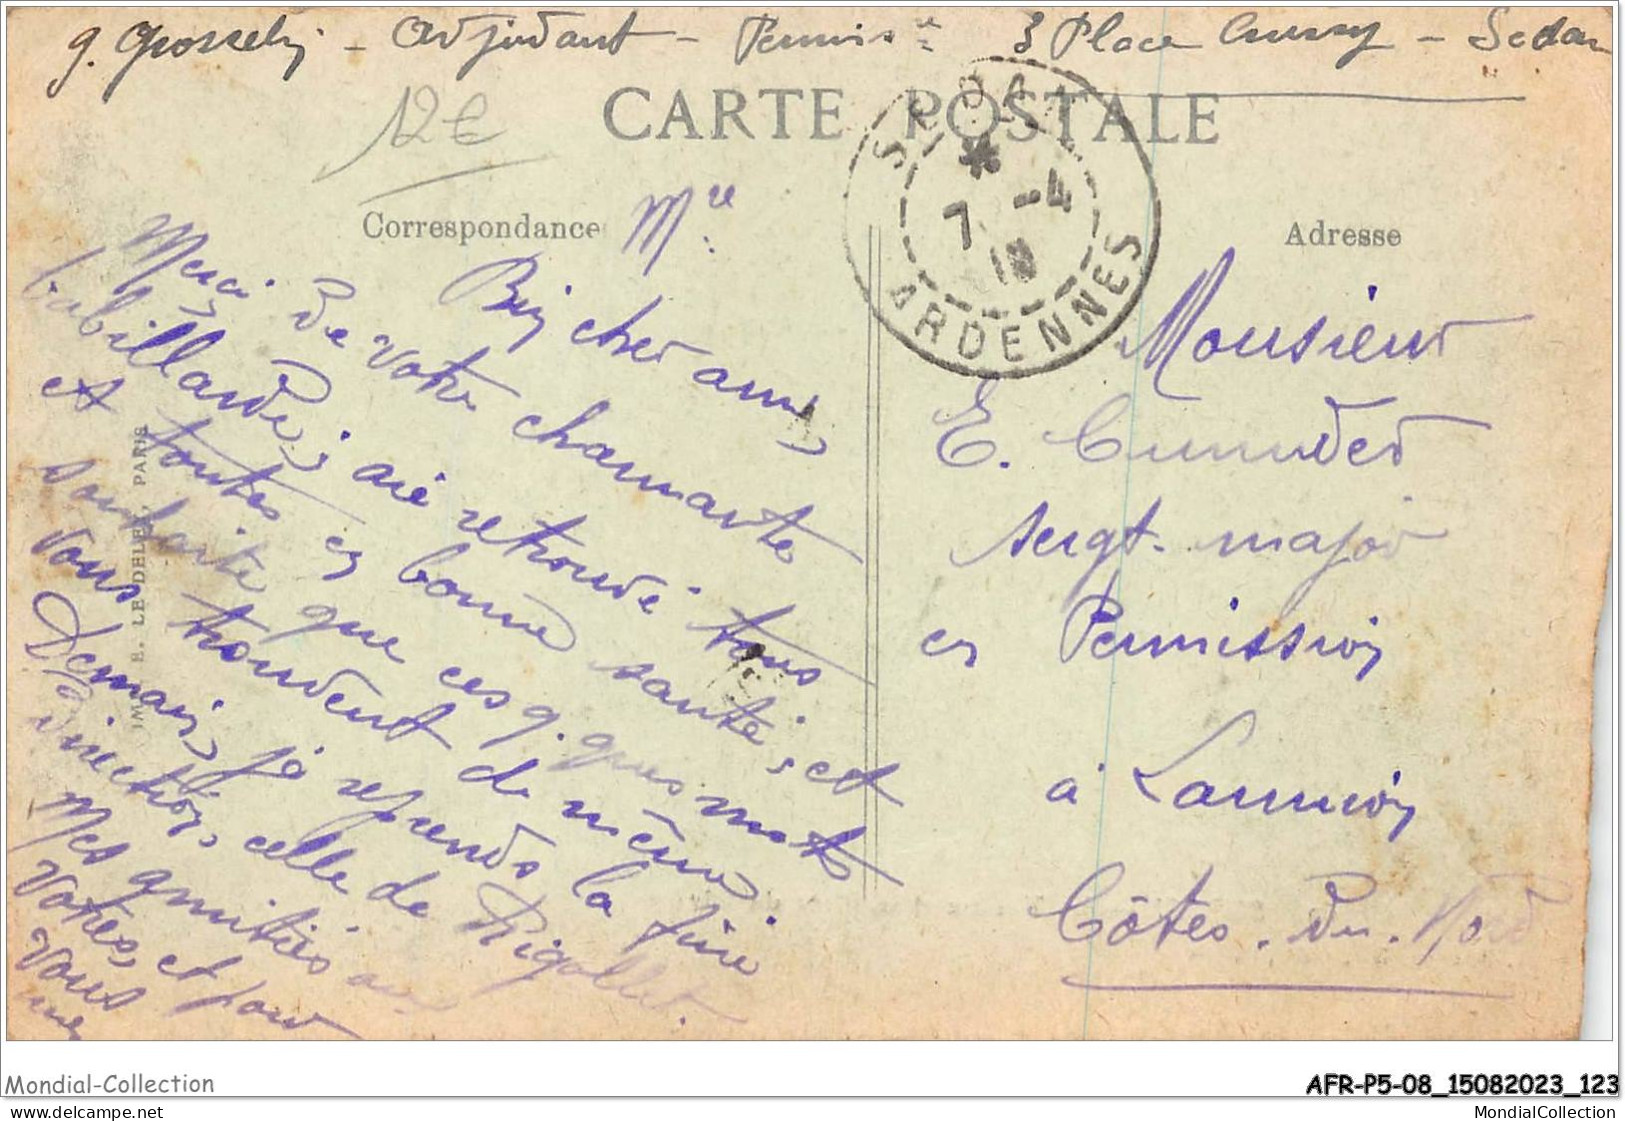 g. Gosselin - Adjudant - Permis re 3 Place Crussy - Sedan
12€
CARTE POSTALE
SEDAN
* 7 -4
ARDENNES
Correspondance
Adresse
Bien cher ami,
Merci de votre charmante
babillarde; ai retrouvé tous
et toutes en bonne santé; et
souhaite que ces q. ques mots
vous trouvent de même
Demain, je reprends la
direction, celle de Rigollet.
Mes amitiés aux
vôtres, et pour
vous
Monsieur
E.
sergt. major
en Permission
à Lannion
Côtes. du. Nord
IMP. E. LE DELEY, PARIS
Mondial-Collection
AFR-P5-08_15082023_123
www.delcampe.net
MondialCollection